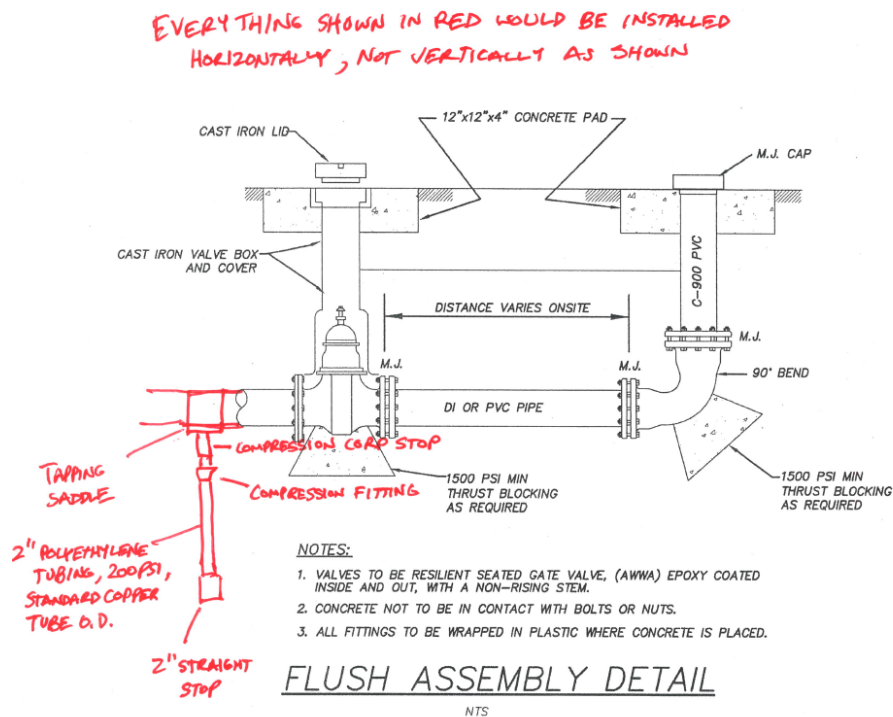 EVERYTHING SHOWN IN RED WOULD BE INSTALLED
HORIZONTALLY, NOT VERTICALLY AS SHOWN
12"x12"x4" CONCRETE PAD
CAST IRON LID
M.J. CAP
CAST IRON VALVE BOX
AND COVER
C-900 PVC
DISTANCE VARIES ONSITE
M.J.
M.J.
M.J.
90° BEND
DI OR PVC PIPE
COMPRESSION CORP STOP
TAPPING
SADDLE
1500 PSI MIN
THRUST BLOCKING
AS REQUIRED
1500 PSI MIN
THRUST BLOCKING
AS REQUIRED
COMPRESSION FITTING
2" POLYETHYLENE
TUBING, 200 PSI,
STANDARD COPPER
TUBE O.D.
2" STRAIGHT
STOP
NOTES:
1. VALVES TO BE RESILIENT SEATED GATE VALVE, (AWWA) EPOXY COATED
INSIDE AND OUT, WITH A NON-RISING STEM.
2. CONCRETE NOT TO BE IN CONTACT WITH BOLTS OR NUTS.
3. ALL FITTINGS TO BE WRAPPED IN PLASTIC WHERE CONCRETE IS PLACED.
FLUSH ASSEMBLY DETAIL
NTS